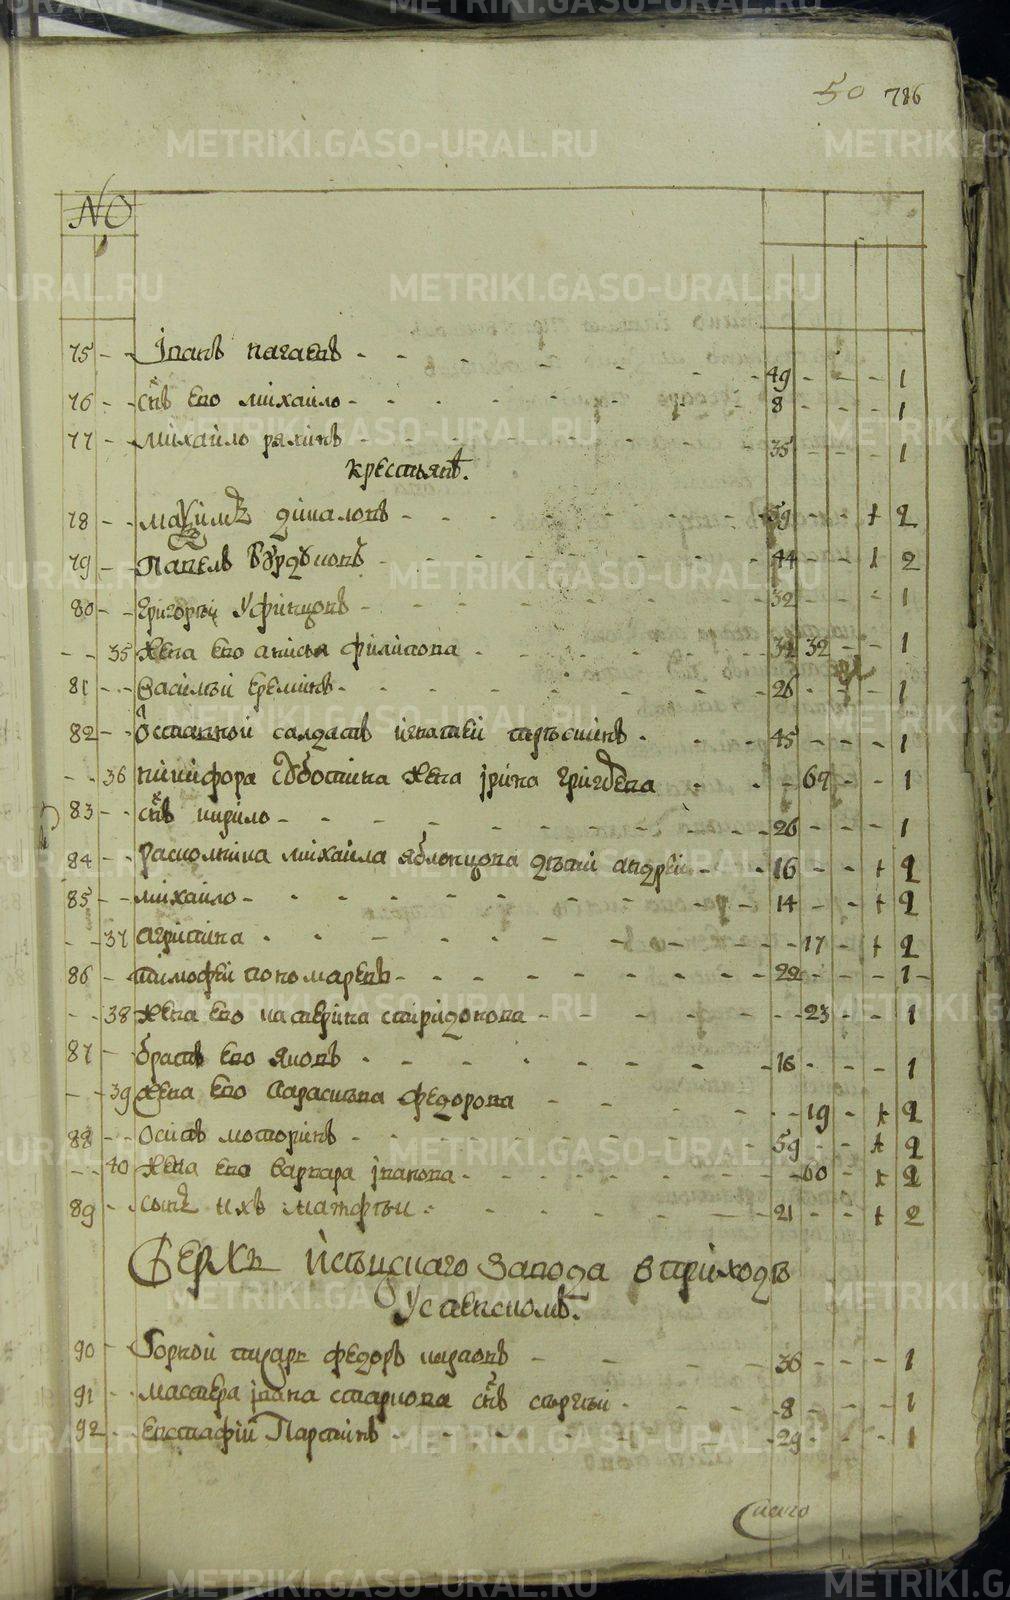 50 786
NO
75 - - Iванъ нагаевъ - - - 49 - - - 1
76 - - снъ ево михаило - - - 8 - - - 1
77 - - михаило рякинъ - - - 35 - - - 1
крестьянъ.
78 - - маѯимъ - - - 59 - - + 2
79 - - Павелъ - - - 44 - - 1 2
80 - - григореи Уфинцовъ - - - 32 - - - 1
- - 35 жена ево анисья филипова - - - 32 - - 1
81 - - василеи еремин - - - 26 - - - 1
82 - - ѿставной салдатъ игнатеи - - - 45 - - - 1
- - 36 никифора субботина жена iрина григорева - - - 67 - - 1
83 - - снъ кирило - - - 26 - - - 1
84 - - расколника михаила яблонцова дѣти андреи - - - 16 - - + 2
85 - - михаило - - - 14 - - + 2
- - 37 агрипина - - - 17 - + 2
86 - - тимофеи пономаревъ - - - 22 - - - 1 -
- - 38 жена ево катерина спиридонова - - - 23 - - 1
87 - - братъ ево яковъ - - - 16 - - - 1
- - 39 жена ево Парасковья федорова - - - 19 - + 2
88 - - осипъ моторинъ - - - 59 - - + 2
- - 40 жена ево варвара iванова - - - 60 - + 2
89 - сынъ ихъ матфѣи - - - 21 - - + 2
Верхъ Исецкаго завода в приходѣ
Успенскомъ.
90 - Горной писарь федоръ - - - 36 - - - 1
91 - - мастера iвана старкова снъ сергѣи - - - 8 - - - 1
92 - - евстафiй Паршинъ - - - 29 - - - 1